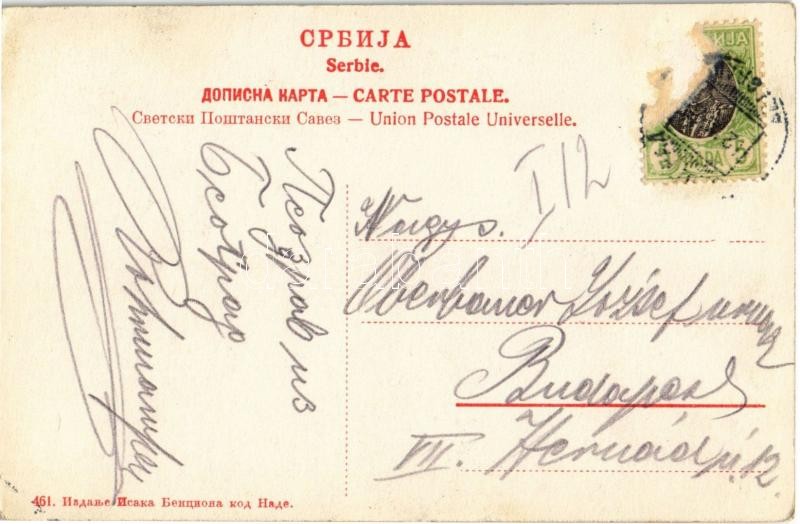 СРБИЈА
Serbie.
ДОПИСНА КАРТА — CARTE POSTALE.
Светски Поштански Савез — Union Postale Universelle.
Поздрав из
I/2
Nagys.
József
Budapest
VII. Hernád u. 12
461. Издање Исака Бенциона код Наде.